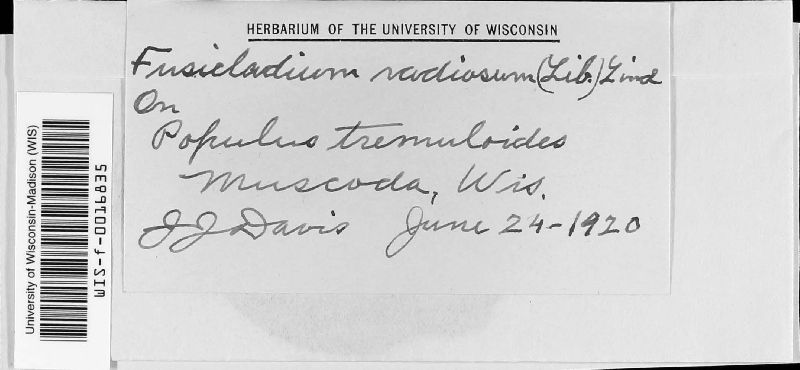 HERBARIUM OF THE UNIVERSITY OF WISCONSIN
Fusicladium radiosum (Lib.) Lind
On
Populus tremuloides
Muscoda, Wis.
J J Davis June 24-1920
University of Wisconsin-Madison (WIS)
WIS-f-0016835